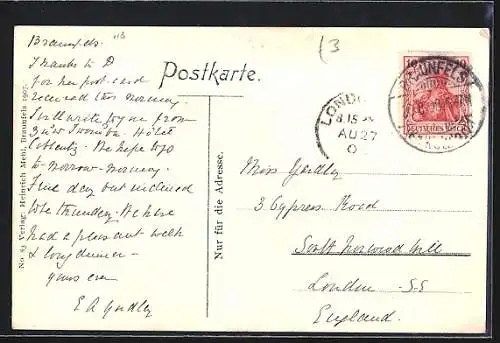 Braunfels.
Thanks to D
for her post card
received this morning.
Will write to you from
Hotel
Coblentz. We hope to go
to-morrow-morning.
Fine day but inclined
to be thundery. We have
had a pleasant walk
& long dinner -
yours ever
E A Yardley
Postkarte.
Nur für die Adresse.
No 83 Verlag: Heinrich Mehl, Braunfels 1907.
(3
LONDON
8.15
AU 27
0
BRAUNFELS
10
DEUTSCHES REICH
Miss Yardley
3 Cypress Road
South Norwood Hill
London - S.E
England.